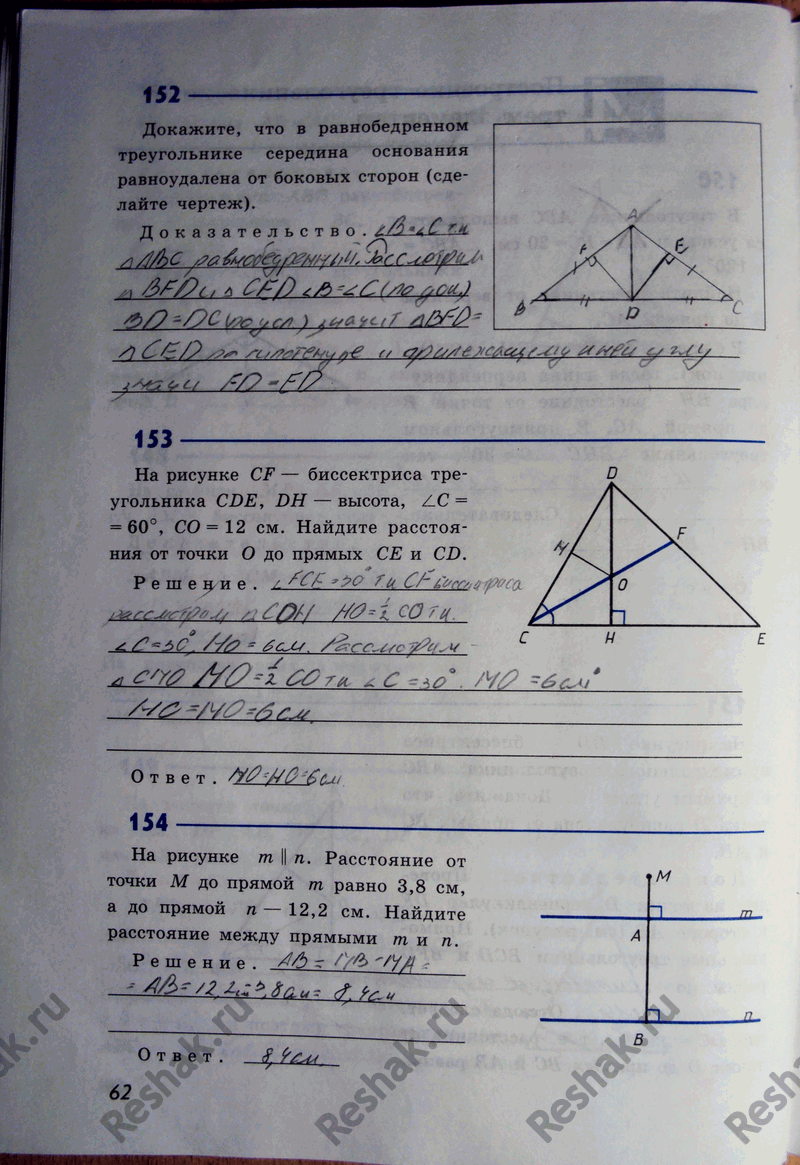 152
Докажите, что в равнобедренном
треугольнике середина основания
равноудалена от боковых сторон (сде-
лайте чертеж).
Доказательство. ∠B=∠C т.к
△ABC равнобедренный. Рассмотрим
△ BFD и △ CED ∠B=∠C (по док)
BD=DC (по усл) значит △BFD=
△CED по гипотенузе и прилежащему к ней углу
значи FD=ED
A
F
E
B
D
C
153
На рисунке CF — биссектриса тре-
угольника CDE, DH — высота, ∠C =
= 60°, CO = 12 см. Найдите расстоя-
ния от точки O до прямых CE и CD.
Решение. ∠FCE=30° т.к CF биссектриса
рассмотрим △COH HO=½ CO т.к.
∠C=30°, HO = 6см. Рассмотрим
△ CMO MO=½ CO т.к ∠C=30°. MO=6см
HO=MO=6см.
Ответ. MO=HO=6см
D
M
F
O
C
H
E
154
На рисунке m ∥ n. Расстояние от
точки M до прямой m равно 3,8 см,
а до прямой n — 12,2 см. Найдите
расстояние между прямыми m и n.
Решение. AB = MB-MA =
= AB=12,2см-3,8см= 8,4см
Ответ. 8,4см.
M
m
A
n
B
62
Reshak.ru
Reshak.ru
Reshak.ru